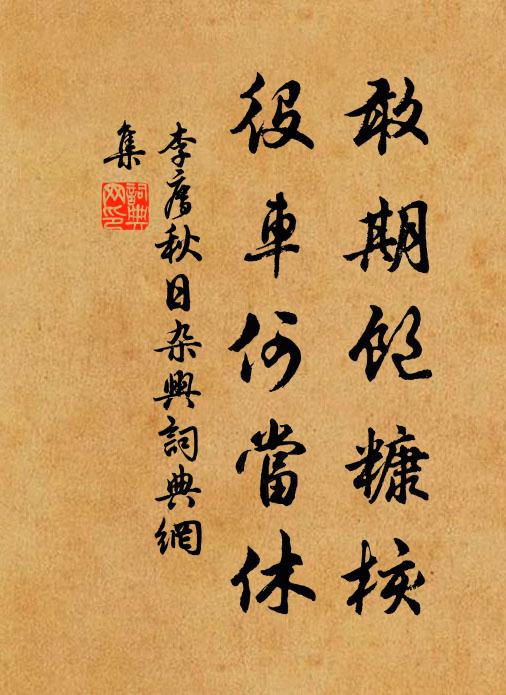 敢期飽糠核
役車何當休
李廌秋日杂興詞典網
集
詞典
网印